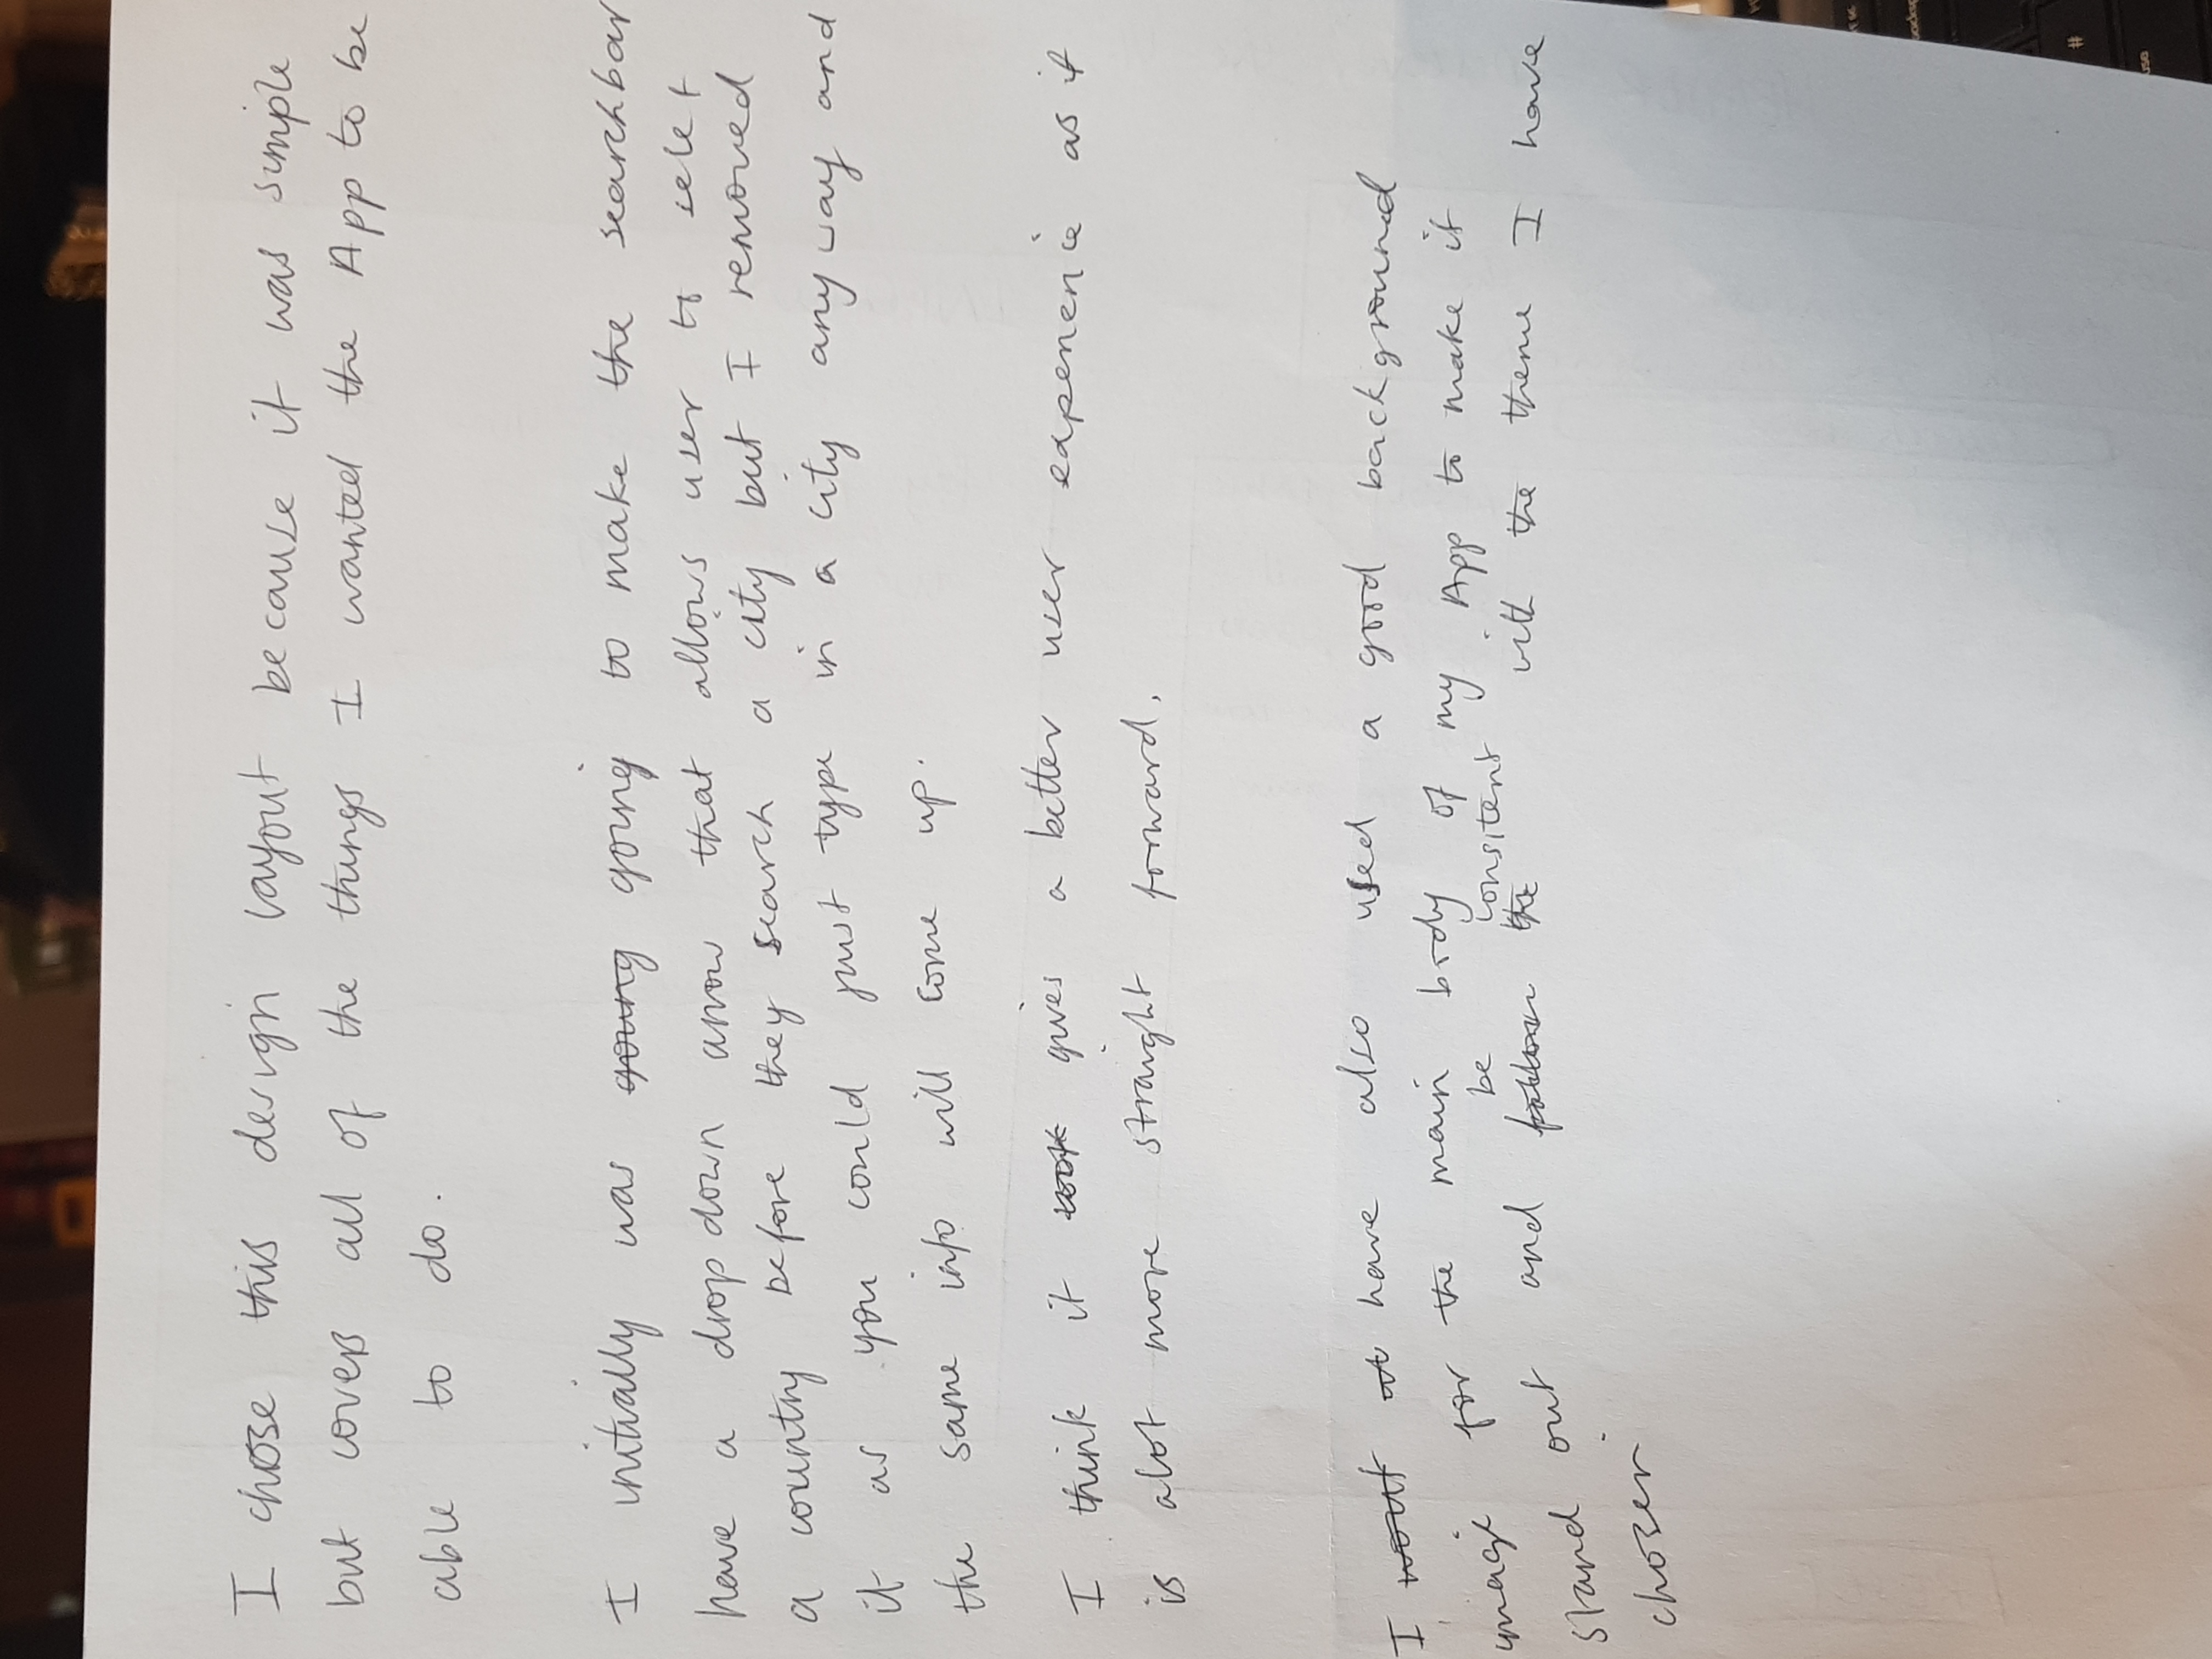 I chose this design layout because it was simple
but covers all of the things I wanted the App to be
able to do.
I initially was going going to make the searchbar
have a drop down arrow that allows user to selet
a country before they search a city but I removed
it as you could just type in a city anyway and
the same info will come up.
I think it look gives a better user experience as it
is alot more straight forward.
I have also used a good background
image for the main body of my App to make it
be consitent
stand out and follow the with the theme I have
chosen